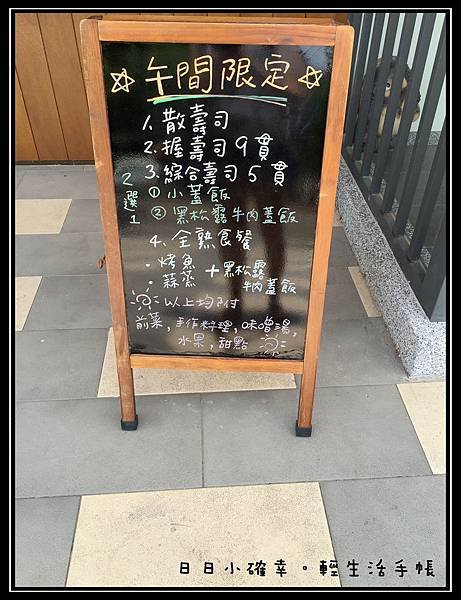 ☆午間限定☆
1. 散壽司
2. 握壽司 9貫
3. 綜合壽司 5貫
2選1 ① 小蓋飯
② 黑松露牛肉蓋飯
4. 全熟食餐
・烤魚
・蒜蒸
+黑松露
牛肉蓋飯
以上均附
前菜,手作料理,味噌湯,
水果,甜點
日日小確幸。輕生活手帳